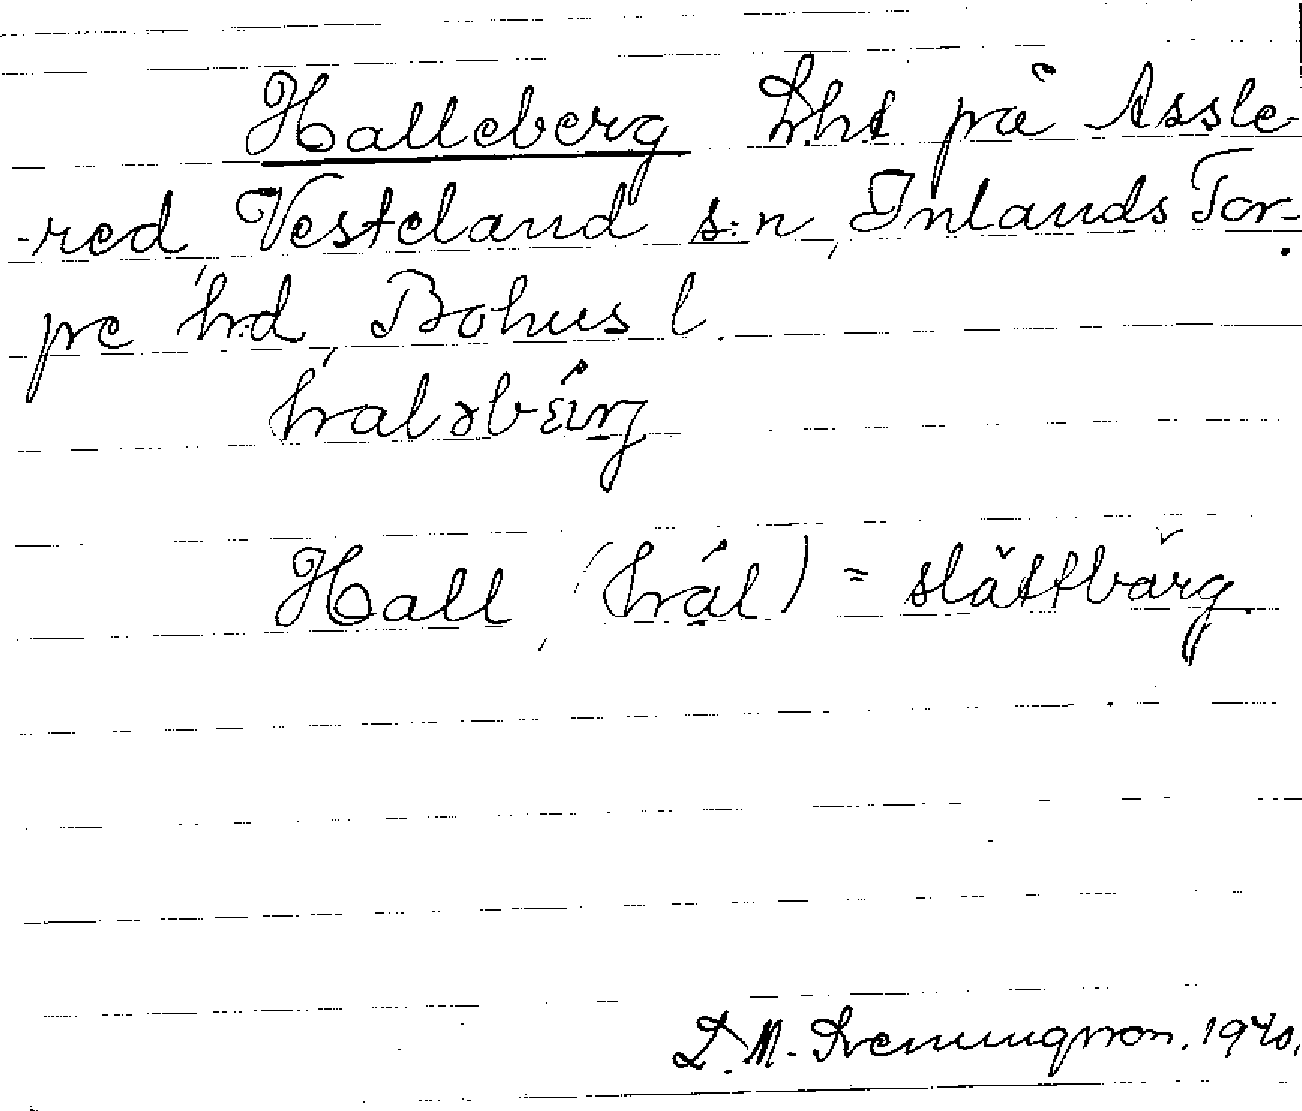 Halleberg Lht på Assle-
-red, Vesteland s:n, Inlands Tor-
pe h:d, Bohus l.
haləbæ̀rj
Hall, (hál) = slättbärg.
D. M. 1940.